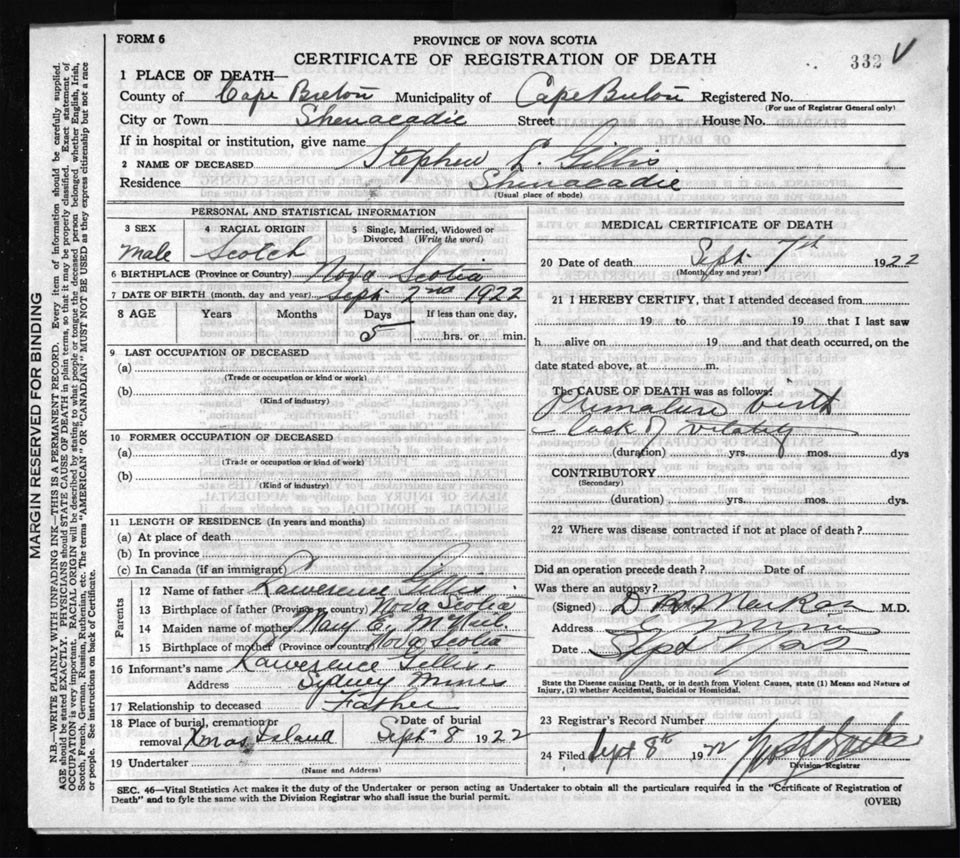 FORM 6
PROVINCE OF NOVA SCOTIA
CERTIFICATE OF REGISTRATION OF DEATH
332 V
1 PLACE OF DEATH—
County of Cape Breton Municipality of Cape Breton Registered No.
(For use of Registrar General only)
City or Town Shenacadie Street House No.
If in hospital or institution, give name
2 NAME OF DECEASED Stephen L. Gillis
Residence Shenacadie
(Usual place of abode)
PERSONAL AND STATISTICAL INFORMATION
3 SEX
male
4 RACIAL ORIGIN
Scotch
5 Single, Married, Widowed or
Divorced (Write the word)
6 BIRTHPLACE (Province or Country) Nova Scotia
7 DATE OF BIRTH (month, day and year) Sept 2nd 1922
8 AGE Years Months Days If less than one day,
5 hrs. or min.
9 LAST OCCUPATION OF DECEASED
(a)
(Trade or occupation or kind or work)
(b)
(Kind of industry)
10 FORMER OCCUPATION OF DECEASED
(a)
(Trade or occupation or kind or work)
(b)
(Kind of industry)
11 LENGTH OF RESIDENCE (In years and months)
(a) At place of death
(b) In province
(c) In Canada (if an immigrant)
Parents
12 Name of father Lawerence Gillis
13 Birthplace of father (Province or country) Nova Scotia
14 Maiden name of mother Mary C. McNeil
15 Birthplace of mother (Province or country) Nova Scotia
16 Informant's name Lawerence Gillis
Address Sydney Mines
17 Relationship to deceased Father
18 Place of burial, cremation or
removal Xmas Island
Date of burial
Sept 8 1922
19 Undertaker
(Name and Address)
MEDICAL CERTIFICATE OF DEATH
20 Date of death Sept 7th 1922
(Month, day and year)
21 I HEREBY CERTIFY, that I attended deceased from
19 to 19 that I last saw
h alive on 19 and that death occurred, on the
date stated above, at m.
The CAUSE OF DEATH was as follows:
Premature birth
lack of vitality
(duration) yrs. mos. dys
CONTRIBUTORY
(Secondary)
(duration) yrs. mos. dys.
22 Where was disease contracted if not at place of death?
Did an operation precede death? Date of
Was there an autopsy?
(Signed) M.D.
Address S. Mines
Date Sept
State the Disease causing Death, or in death from Violent Causes, state (1) Means and Nature of
Injury, (2) whether Accidental, Suicidal or Homicidal.
23 Registrar's Record Number
24 Filed Sept 8th 1922
Division Registrar
SEC. 46—Vital Statistics Act makes it the duty of the Undertaker or person acting as Undertaker to obtain all the particulars required in the "Certificate of Registration of
Death" and to fyle the same with the Division Registrar who shall issue the burial permit.
(OVER)
MARGIN RESERVED FOR BINDING
N.B.—WRITE PLAINLY WITH UNFADING INK—THIS IS A PERMANENT RECORD. Every item of information should be carefully supplied.
AGE should be stated EXACTLY. PHYSICIANS should STATE CAUSE OF DEATH in plain terms, so that it may be properly classified. Exact statement of
OCCUPATION is very important. RACIAL ORIGIN will be described by stating to what people or tongue the deceased person belonged whether English, Irish,
Scotch, French, German, Russian, Ruthenian, etc. The terms "AMERICAN" OR "CANADIAN" MUST NOT BE USED as they express citizenship but not a race
or people. See instructions on back of Certificate.